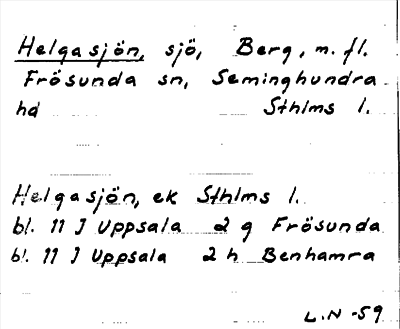 Helgasjön, sjö, Berg, m. fl.
Frösunda sn, Seminghundra
hd Sthlms l.
Helgasjön, ek Sthlms l.
bl. 11 J Uppsala 2 g Frösunda
bl. 11 J Uppsala 2 h Benhamra
L.N -59